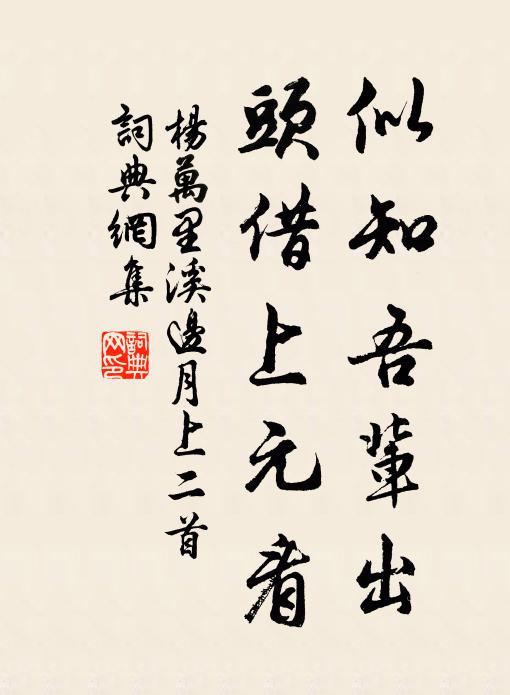 似知吾輩出
頭借上元看
楊萬里溪邊月上二首
詞典網集
詞典网印